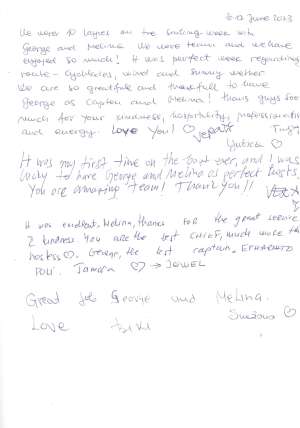 6-13 June 2023
We were 10 ladies on the sailing week with
George and Melina. We were team and we have
enjoyed so much! It was perfect week regarding
route - Cyclades, wind and sunny wether
We are so greatfull and thankfull to have
George as Capten and Melina! Thank guys so
much for your kindness, hospitality, professionalism
and energy. Love You! ♡
It was my first time on the boat ever, and I was
lucky to have George and Melina as perfect hosts.
You are amazing team! Thank you!!
It was excellent. Melina, thanks for the great service
& kindness. You are the best chief, much more than
hostess ♡. George, the best captain. EFHARISTO
POLI. Tamara ♡ → JEWEL
Great job George and Melina.
Suzana ♡
Love